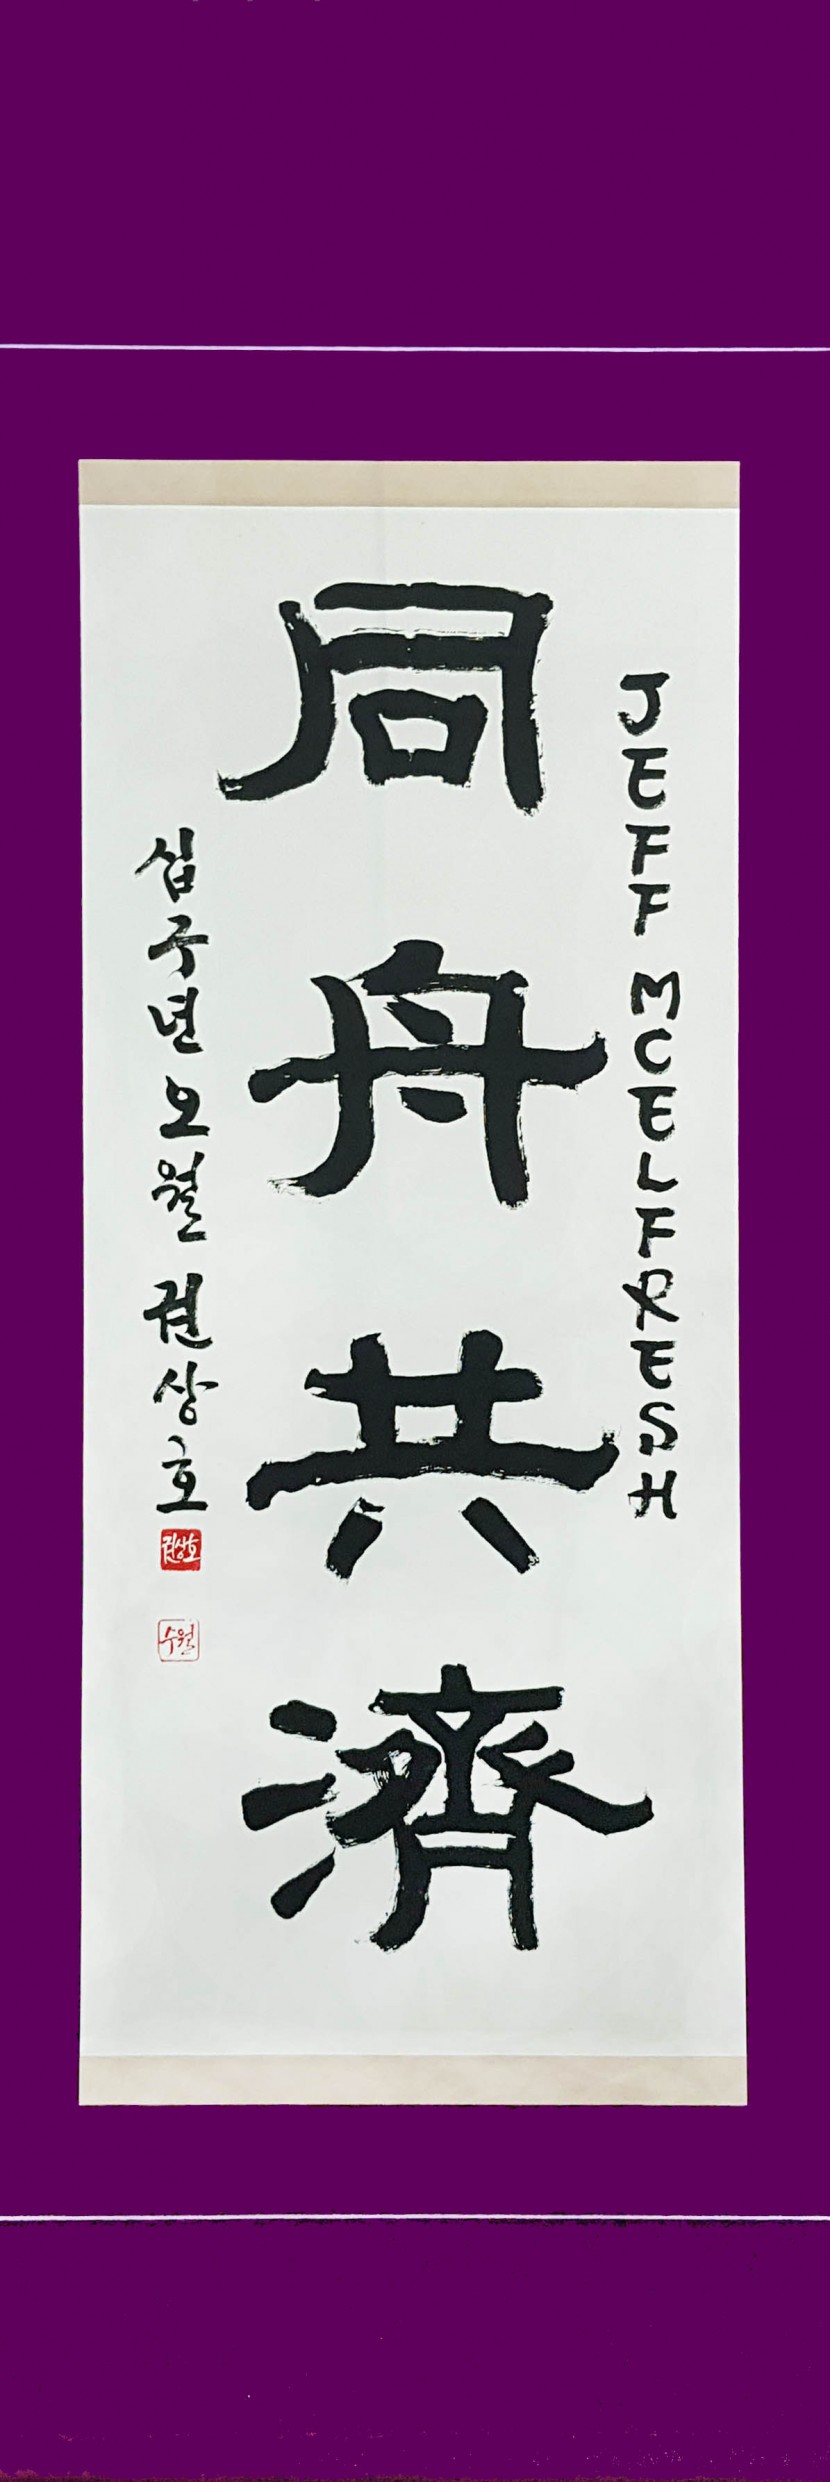 JEFF MCELFRESH
同舟共濟
십구년 오월 권상호
권상호
수월